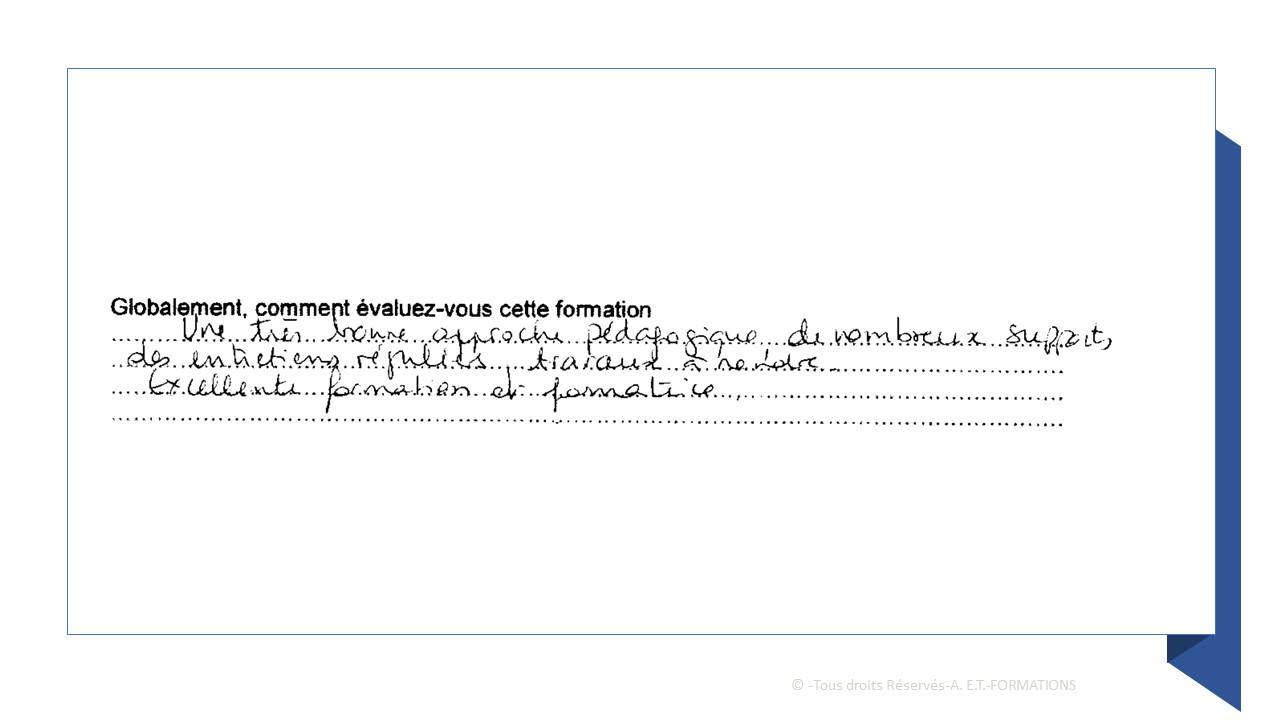 Globalement, comment évaluez-vous cette formation
Une très bonne approche pédagogique de nombreux support,
des entretiens réguliers travaux à rendre
Excellente formation et formatrice
© -Tous droits Réservés-A. E.T.-FORMATIONS